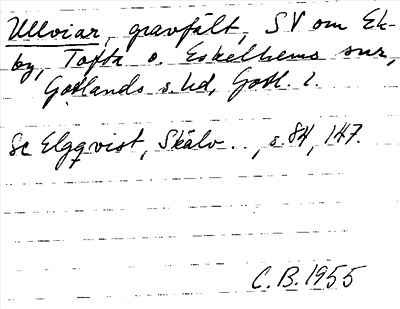 Ullviar, gravfält, SV om Ek-
by, Tofta o. Eskelhems snr,
Gotlands s. hd, Gotl. l.
Se Elgqvist, Skälv.., s. 84, 147.
C. B. 1955